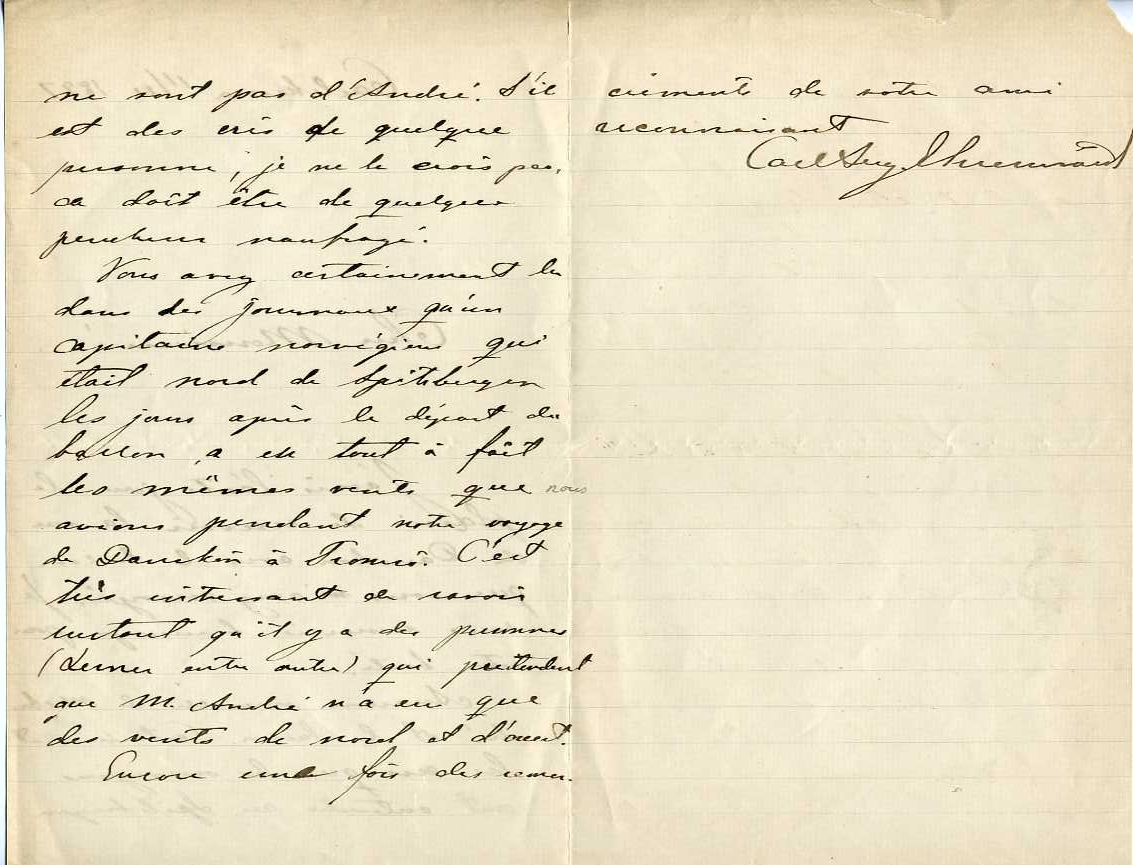 ne sont pas d'André. S'il
est des cris de quelque
personne, je ne le crois pas,
ca doit être de quelques
pecheurs naufragé.
Vous avez certainement lu
dans des journaux qu'un
capitaine norvégien qui
était nord de Spitsbergen
les jours après le départ du
ballon a eu tout à fait
les mêmes vents que nous
avions pendant notre voyage
de Danskön à Tromsö. C'est
très intéressant de savoir
surtout qu'il y a des personnes
(Lerner entre autre) qui prétendent
que M. André n'a eu que
des vents de nord et d'ouest.
Encore une fois des remer-
ciements de votre ami
reconnaisant